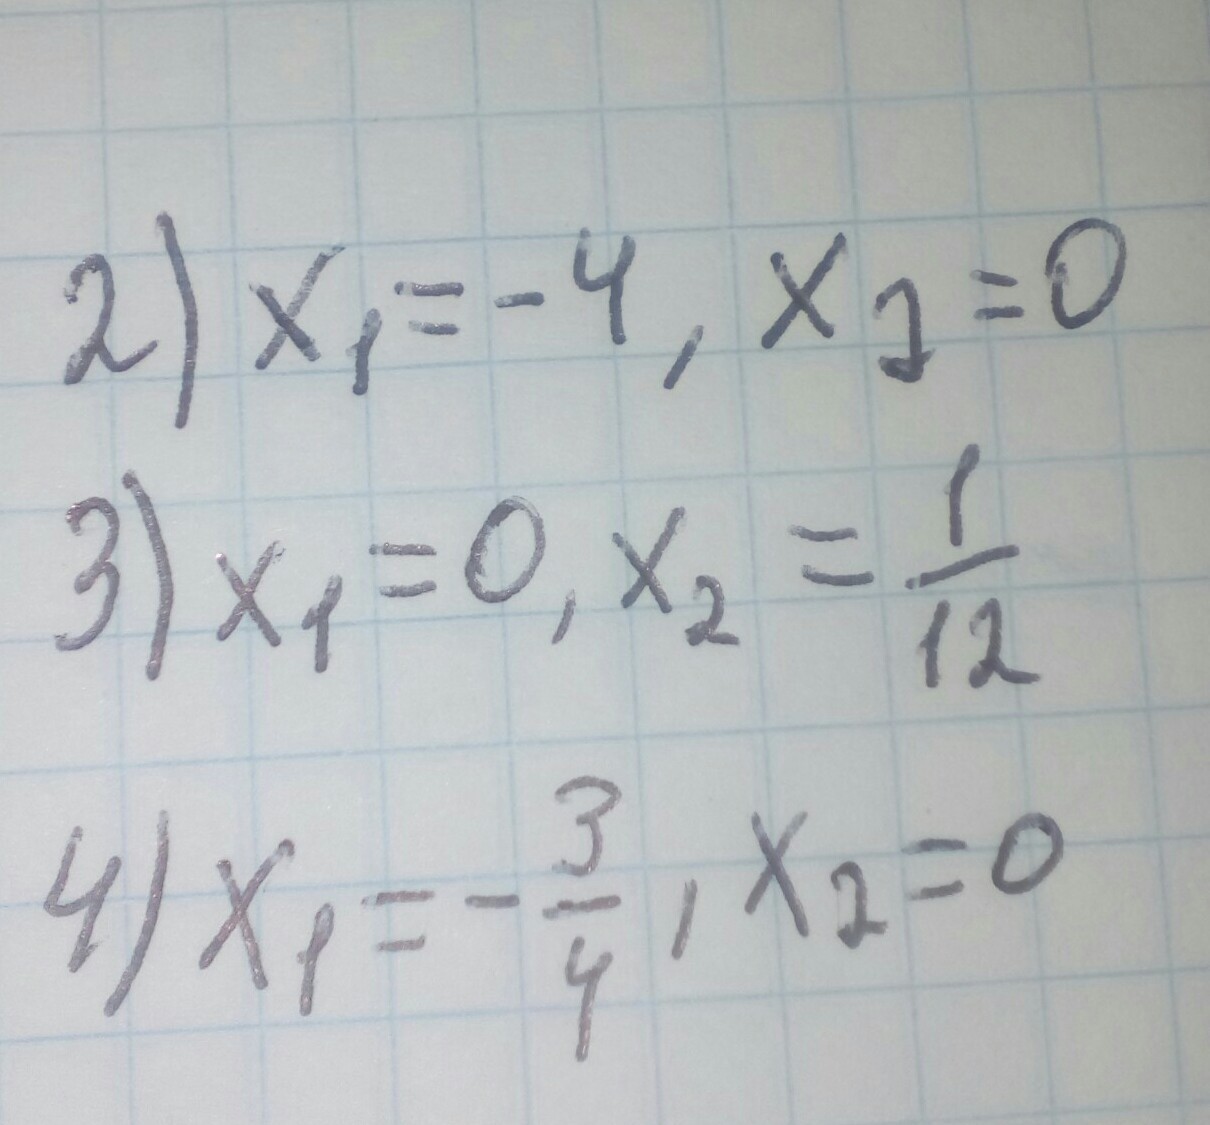 2) x₁ = -4, x₂ = 0
3) x₁ = 0, x₂ = 1/12
4) x₁ = -3/4, x₂ = 0